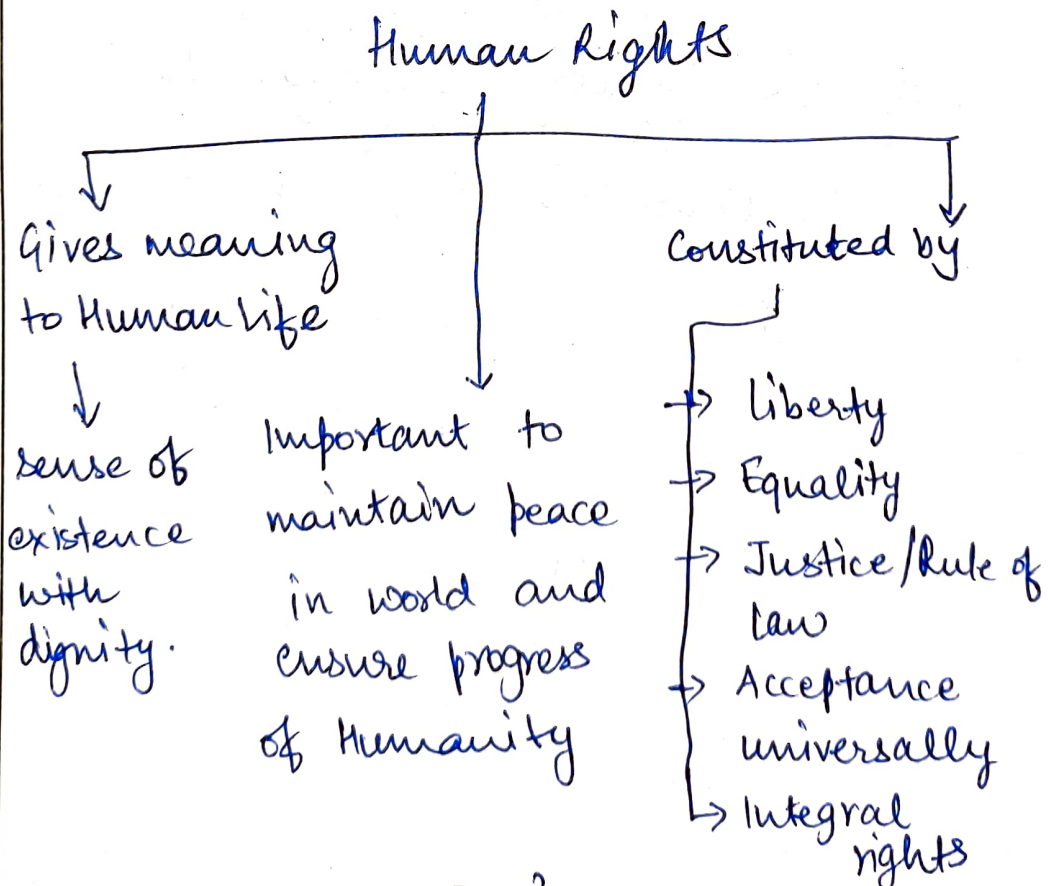 Human Rights
Gives meaning
to Human Life
sense of
existence
with
dignity.
Important to
maintain peace
in world and
ensure progress
of Humanity
Constituted by
liberty
Equality
Justice/Rule of
law
Acceptance
universally
Integral
rights